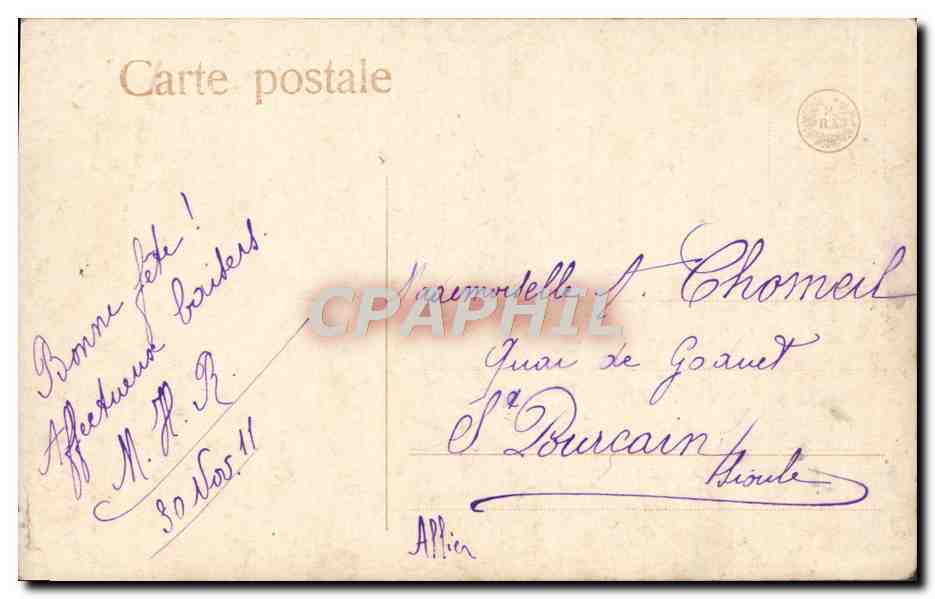 Carte postale
Bonne fête !
Affectueux baisers.
M. H. R.
30 Nov. 11
Mademoiselle J. Chomeil
Quai de
St Pourcain
Sioule
Allier
CPAPHIL